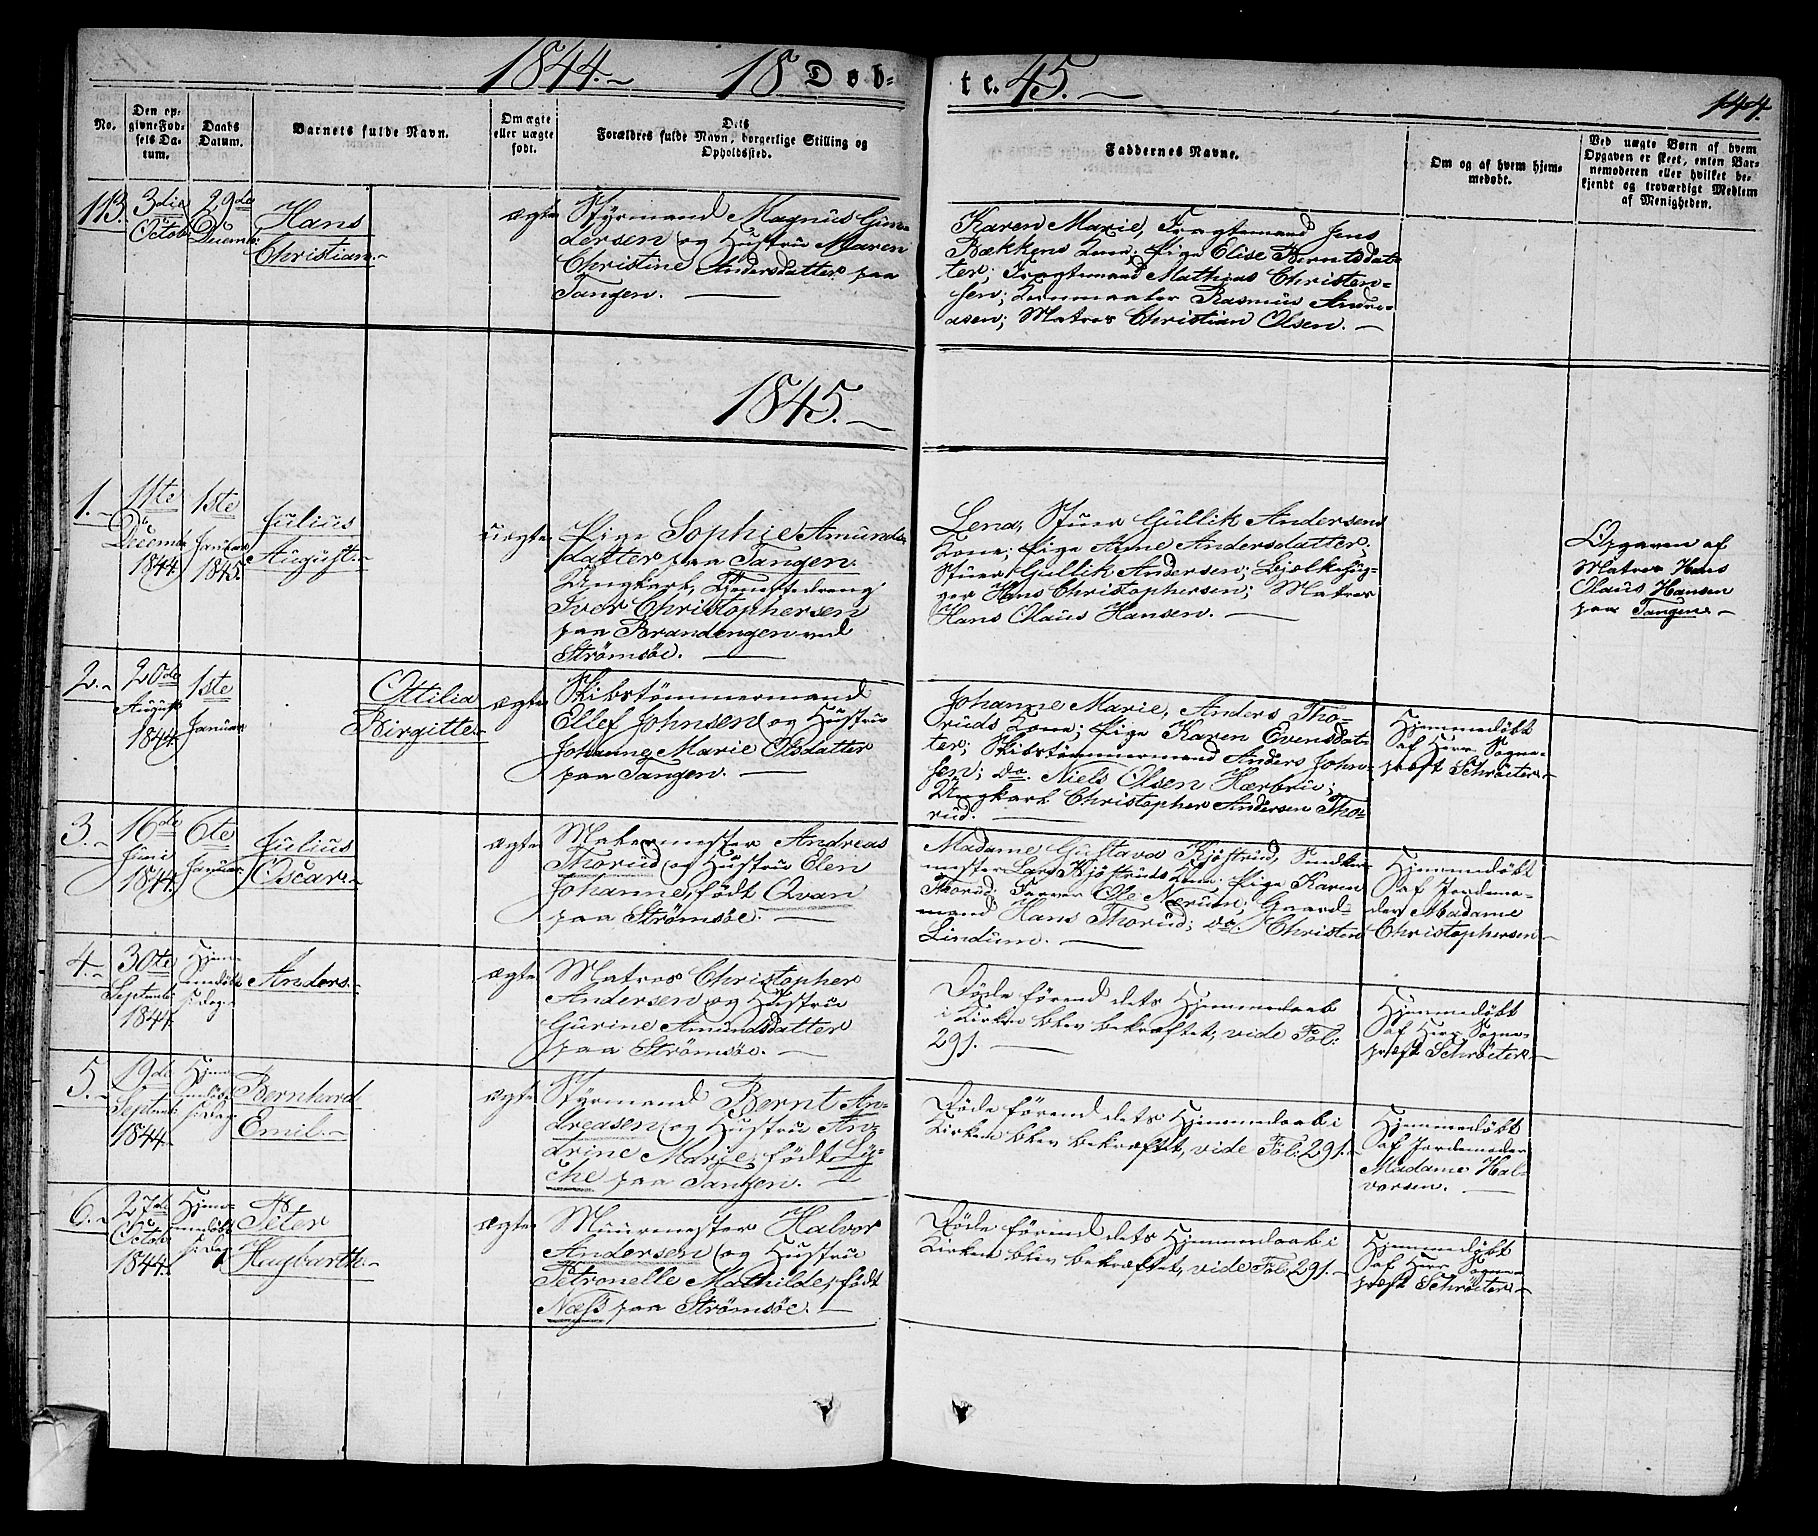 1844.~ 18 Døb-
te. 45.~
144.
No.
Den op-
givne Fød-
sels Da-
tum.
Daabs
Datum.
Barnets fulde Navn.
Om ægte
eller uægte
født.
Dets
Forældres fulde Navn, borgerlige Stilling og
Opholdssted.
Faddernes Navne.
Om og af hvem hjem-
medøbt.
Ved uægte Børn af hvem
Opgaven er skeet, enten Bar-
nemoderen eller hvilket be-
kjendt og troværdigt Medlem
af Menigheden.
113.
3die
Octob.
29de
Decemb.
Hans
Christian.~
ægte
Styrmand Magnus Gun-
dersen og Hustru Maren
Christine Andersdatter paa
Tangen. —
Karen Marie, Fragtemand Jens
Bækkens Kone; Pige Elise Berntsdat-
ter; Fragtemand Mathias Christen-
sen; Kornmaaler Rasmus Andre-
asen; Matros Christian Olsen. ~
1845.~
1.~
11te
Decemb.
1844.
1ste
Januar
1845.
Julius
August.~
uægte
Pige Sophie Amunds-
datter paa Tangen.
Ungkarl, Tjenestedreng
Iver Christophersen
paa Brandengen ved
Strømsøe. —
Lena, Stuer Gullik Andersens
Kone; Pige Anne Andersdatter;
Stuer Gullik Andersen;
Hans Christophersen; Matros
Hans Olaus Hansen. —
Opgaven af
Matros Hans
Olaus Hansen
paa Tangen.~
2.~
20de
August
1844.
1ste
Januar
Ottilia
Birgitte.~
ægte
Skibstømmermand
Ellef Johnsen og Hustru
Johanne Marie Olsdatter
paa Tangen. —
Johanne Marie, Anders Tho-
ruds Kone; Pige Karen Evensdat-
ter; Skibstømmermand Anders John-
sen; do. Niels Olsen Hærbru;
Ungkarl Christopher Andersen Tho-
rud. —
Hjemmedøbt
af Herr Sogne-
præst Schrøeter.~
3.~
16de
Juni
1844.
6te
Januar
Julius
Oscar.~
ægte
Malermester Andreas
Thorud og Hustru Elen
Johanne, født Qvan
paa Strømsøe. —
Madame Gustava Kjøstrud, Snedker-
mester Lars Kjøstruds Kone; Pige Karen
Thorud; Farver Ole Nærum; Gaard-
mand Hans Thorud; do. Christen
Lindum. —
Hjemmedøbt
af Jordemo-
der Madame
Christophersen.~
4.~
30te
Septemb.
1844.
Hjem-
medøbt
s: Dag.
Anders.~
ægte
Matros Christopher
Andersen og Hustru
Gurine Amundsdatter
paa Strømsøe. ~
Døde førend dets Hjemmedaab
i Kirken blev bekræftet, vide Fol:
291. —
Hjemmedøbt
af Herr Sogne-
præst Schrøeter.~
5.~
19de
Septemb.
1844.
Hjem-
medøbt
s: Dag
Bernhard
Emil.~
ægte
Styrmand Bernt An-
dreasen og Hustru An-
drine Marie, født Ly-
che paa Tangen. —
Døde førend dets Hjemmedaab i
Kirken blev bekræftet, vide Fol: 291.~
Hjemmedøbt
af Jordemoder
Madame Hal-
vorsen. —
6.~
27de
Octob.
1844.
Hjem-
medøbt
s: Dag
Peter
Hagbarth.~
ægte
Muurmester Halvor
Andersen og Hustru
Petronelle Mathilde, født
Næss paa Strømsøe. —
Døde førend dets Hjemmedaab i
Kirken blev bekræftet, vide Fol: 291.~
Hjemmedøbt
af Herr Sogne-
præst Schrøeter.~